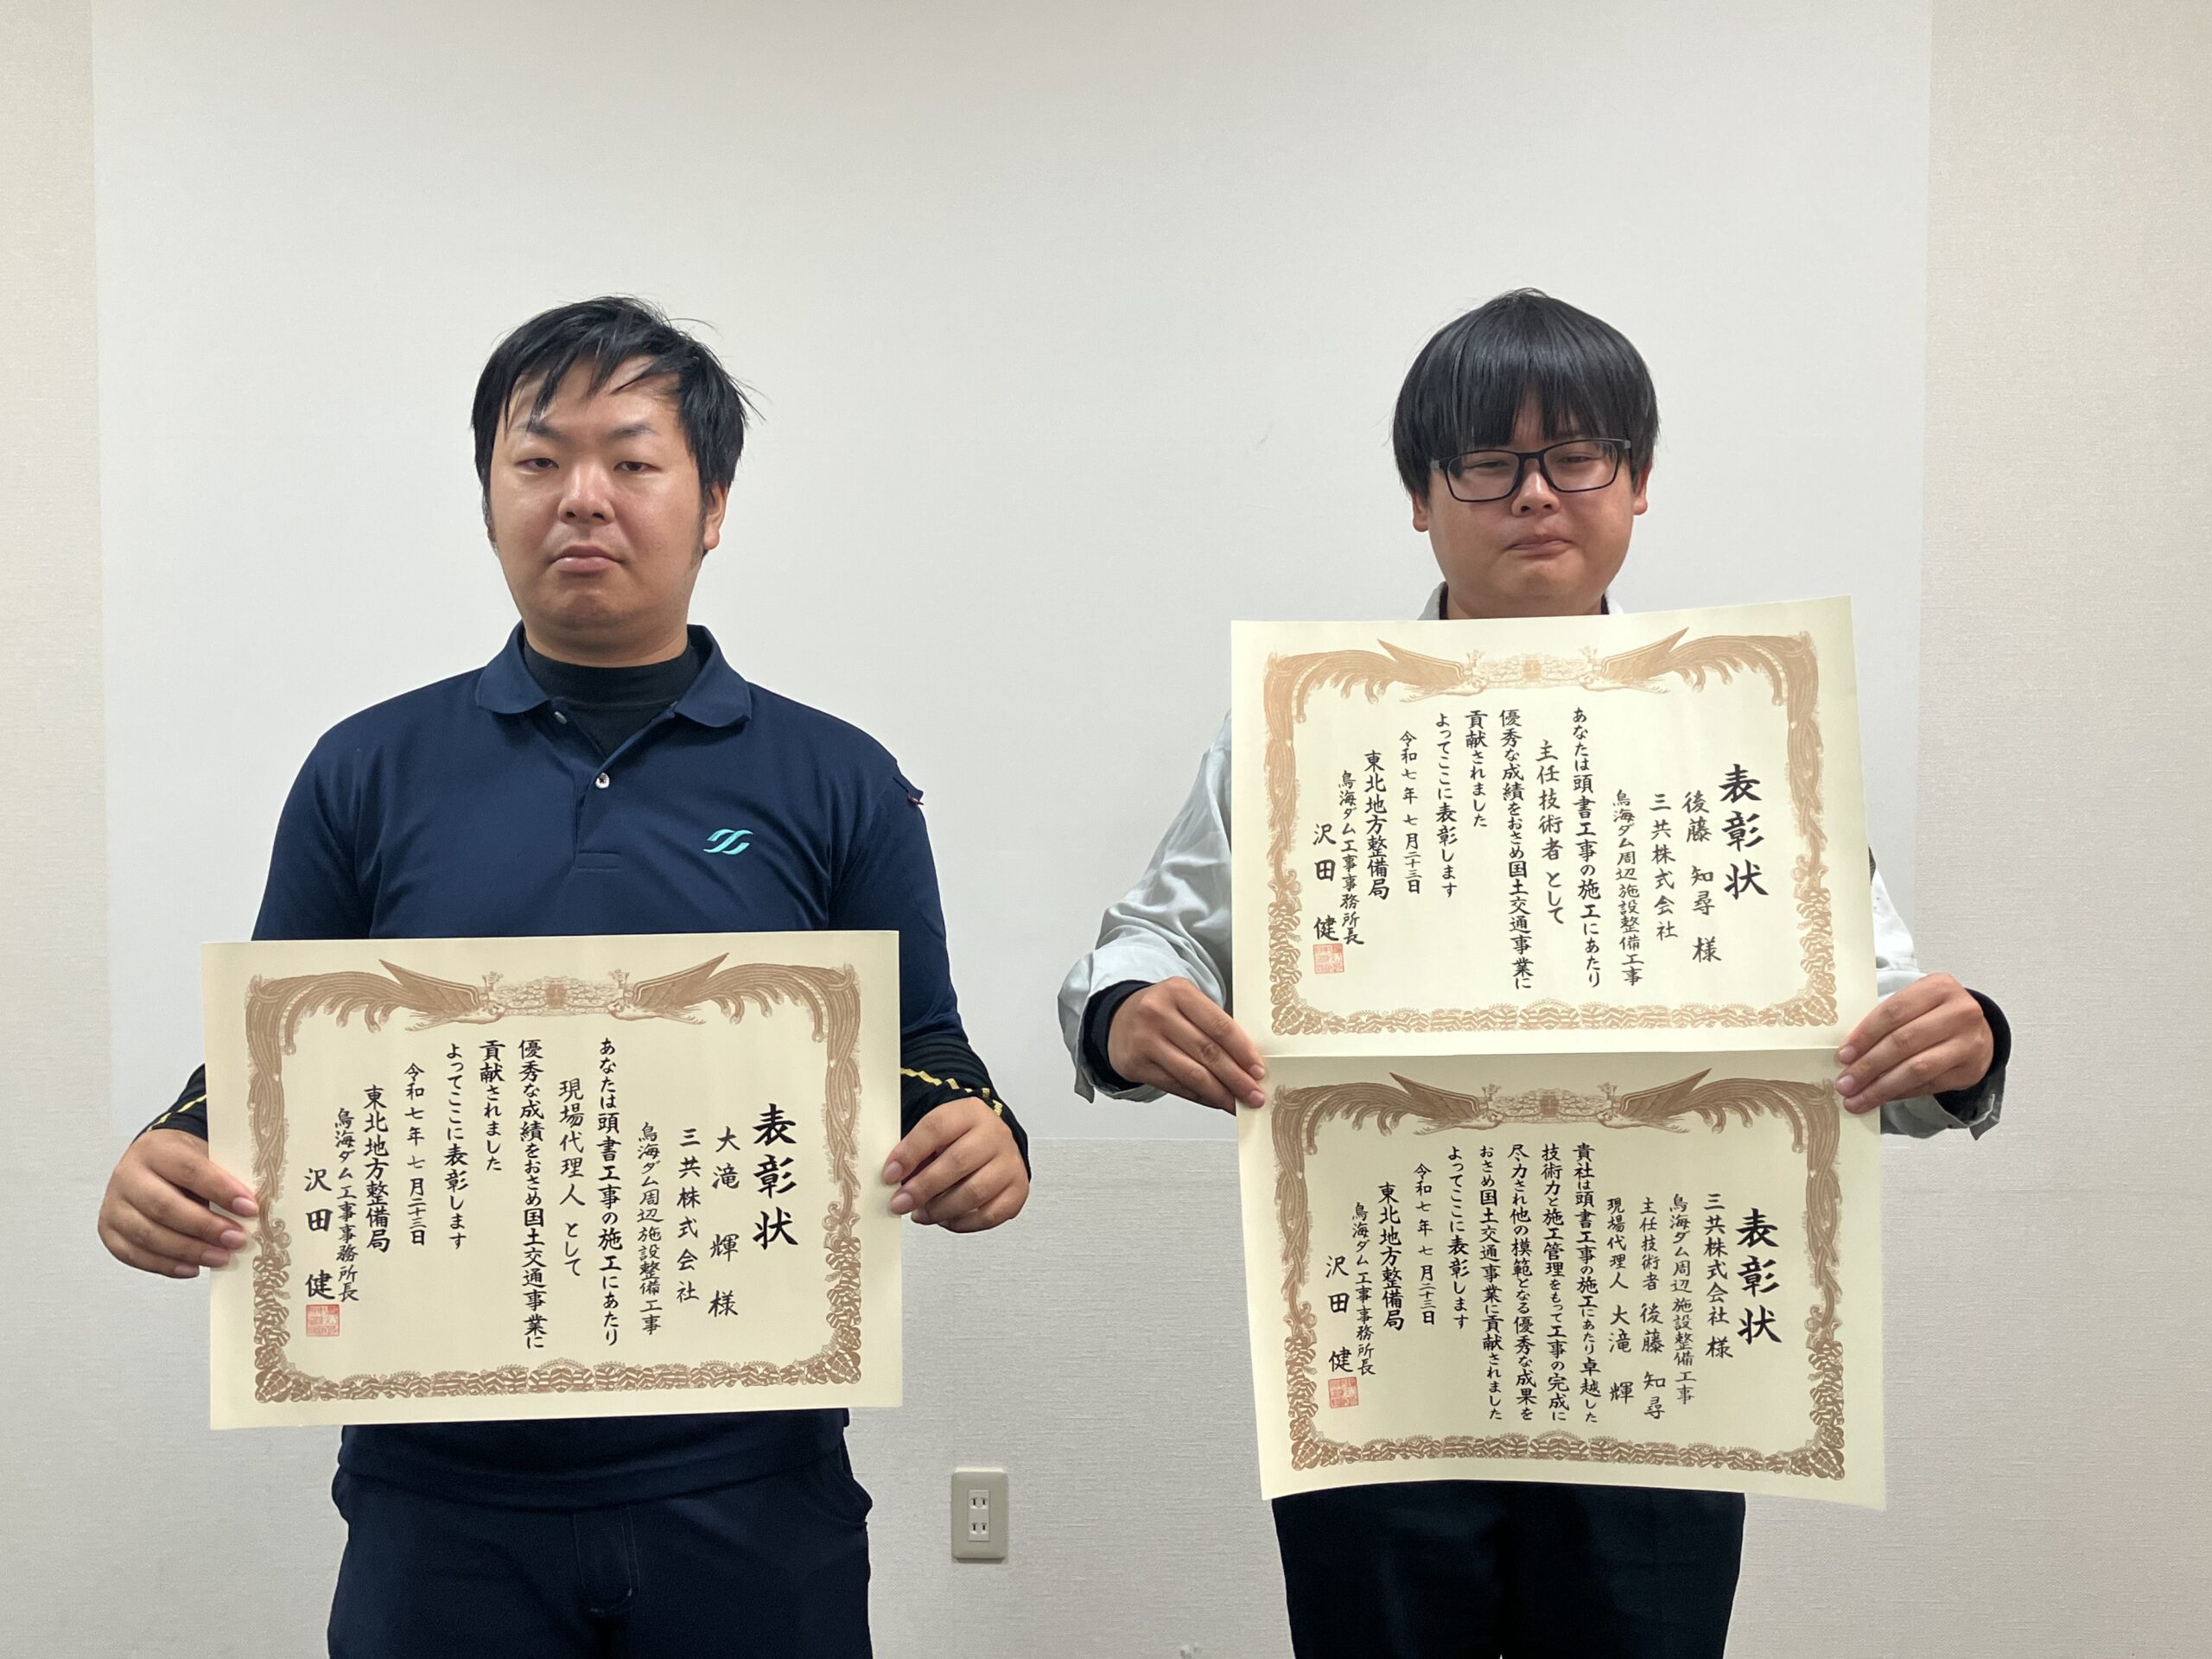 表彰状
大滝 輝 様
三共株式会社
鳥海ダム周辺施設整備工事
あなたは頭書工事の施工にあたり
現場代理人として
優秀な成績をおさめ国土交通事業に
貢献されました
よってここに表彰します
令和七年七月二十三日
東北地方整備局
鳥海ダム工事事務所長
沢田 健
表彰状
後藤 知尋 様
三共株式会社
鳥海ダム周辺施設整備工事
あなたは頭書工事の施工にあたり
主任技術者として
優秀な成績をおさめ国土交通事業に
貢献されました
よってここに表彰します
令和七年七月二十三日
東北地方整備局
鳥海ダム工事事務所長
沢田 健
表彰状
三共株式会社 様
鳥海ダム周辺施設整備工事
主任技術者 後藤 知尋
現場代理人 大滝 輝
貴社は頭書工事の施工にあたり卓越した
技術力と施工管理をもって工事の完成に
尽力され他の模範となる優秀な成果を
おさめ国土交通事業に貢献されました
よってここに表彰します
令和七年七月二十三日
東北地方整備局
鳥海ダム工事事務所長
沢田 健